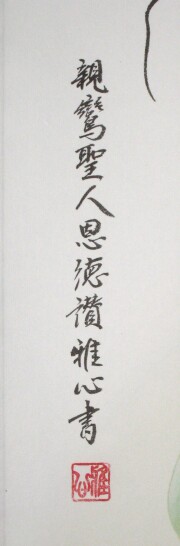 親鸞聖人恩徳讃雅心書
雅心